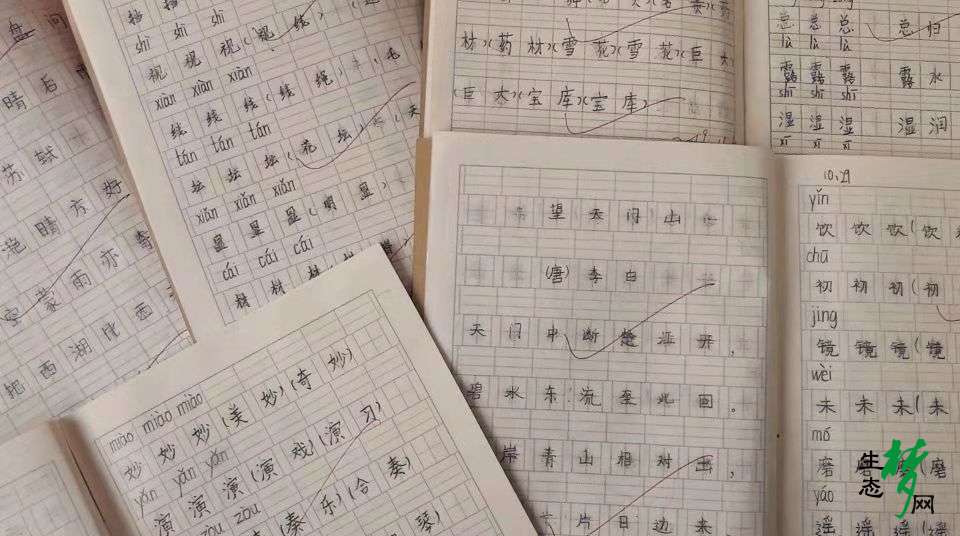 盘问
晴后
苏轼
滟晴方好
空蒙雨亦奇
把西湖比西
挡挡挡
shì shì shì
视视视(视线)
xiàn xiàn xiàn
线线线(线绳)
tán tán tán
坛坛坛(花坛)
xiǎn xiǎn xiǎn
显显显(明显)
cái cái cái
材材材
材)(药材)(雪花)(雪花)(巨大)
(巨大)(宝库)(宝库)
总总总 总归
lù lù lù
露露露 露水
shī shī shī
湿湿湿 湿润
miào miào miào
妙妙妙(美妙)(奇妙)
yǎn yǎn yǎn
演演演(演戏)(演习)
zòu zòu
(奏乐)(合奏)
琴
望天门山
(唐)李白
天门中断楚江开,
碧水东流至此回。
岸青山相对出,
片日边来
10.29
yǐn
饮饮饮(饮
chū
初初初(初
jìng
镜镜镜(镜
wèi
未未未(未
mó
磨磨磨(磨
yáo
遥遥遥(遥
生态梦网